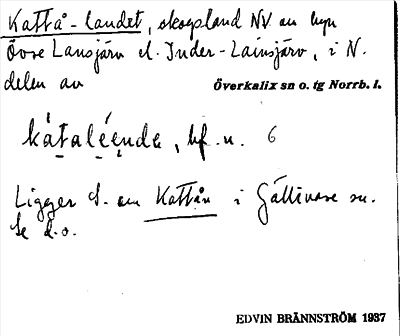 Kattå-landet, skogsland NV om byn
Övre Lansjärv el. Inder-Lainsjärv, i N.
delen av Överkalix sn o. tg Norrb. l.
kátaléenda, bf. n. 6
Ligger S. om Kattån i Gällivare sn.
Se d.o.
EDVIN BRÄNNSTRÖM 1937